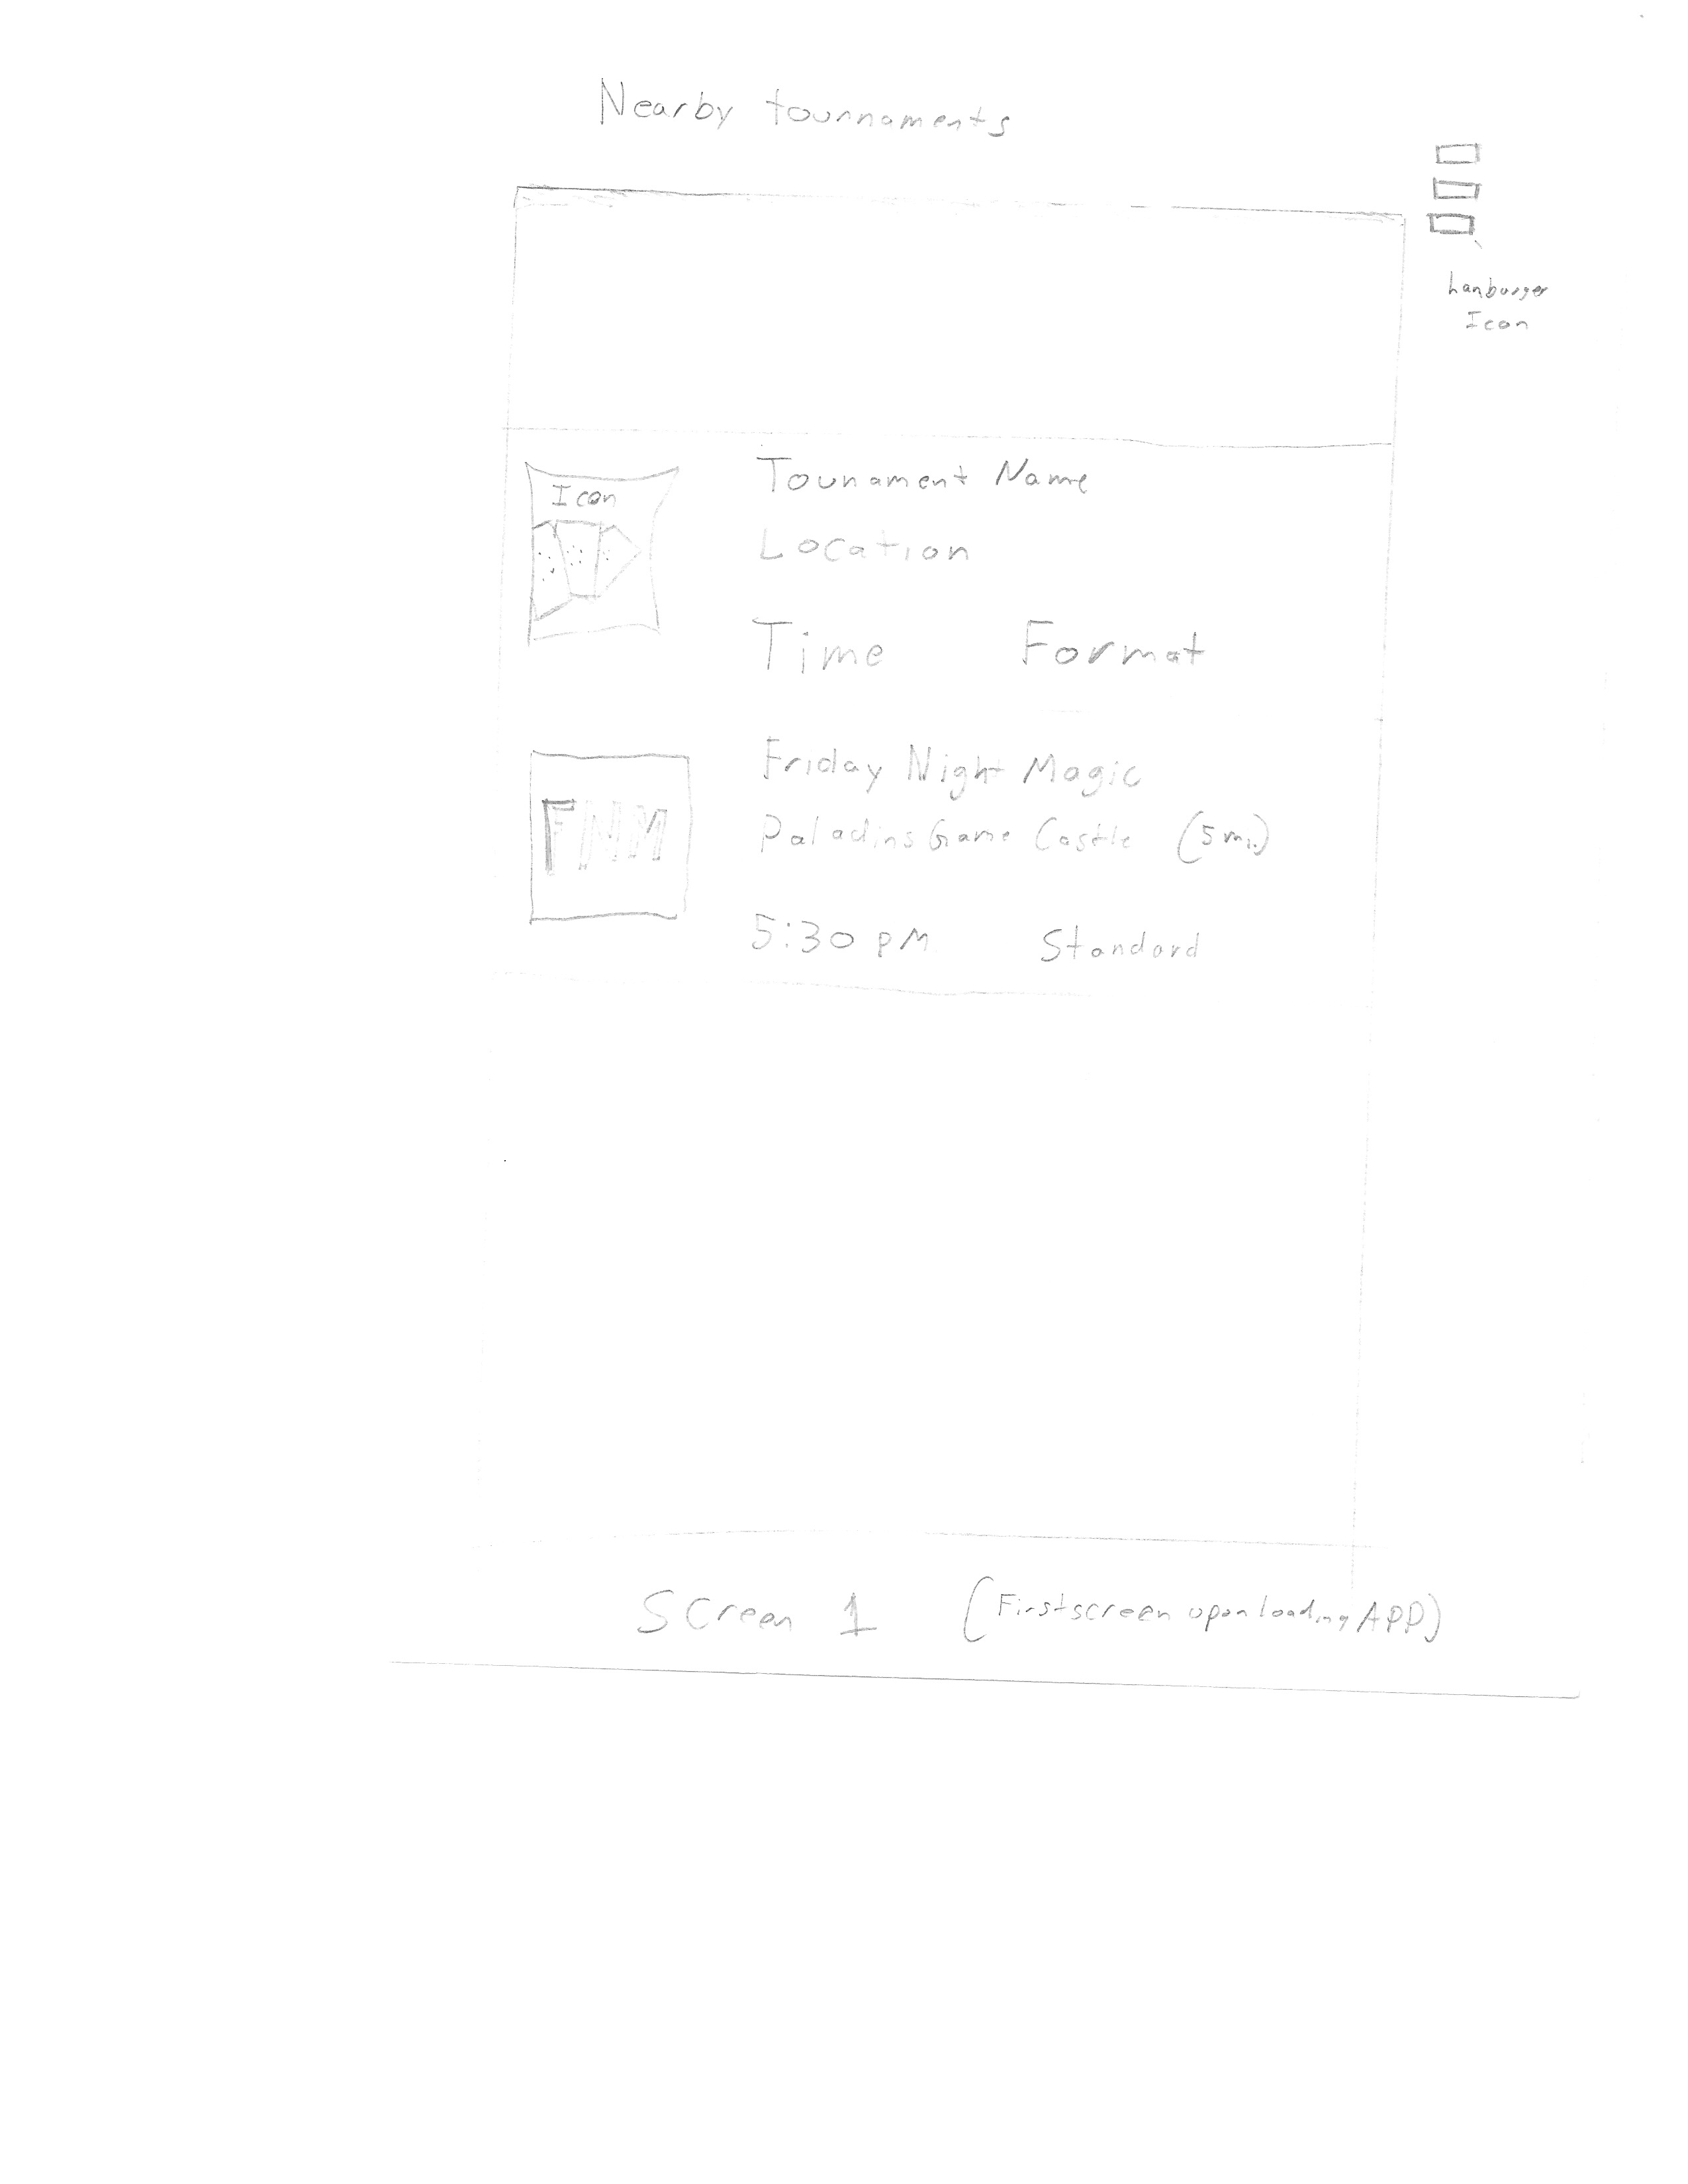 Nearby tournaments
hanburger
Icon
Icon
Tounament Name
Location
Time Format
FNM
Friday Night Magic
Paladins Game Castle (5mi)
5:30 PM Standard
Screen 1 (First screen upon loading APP)